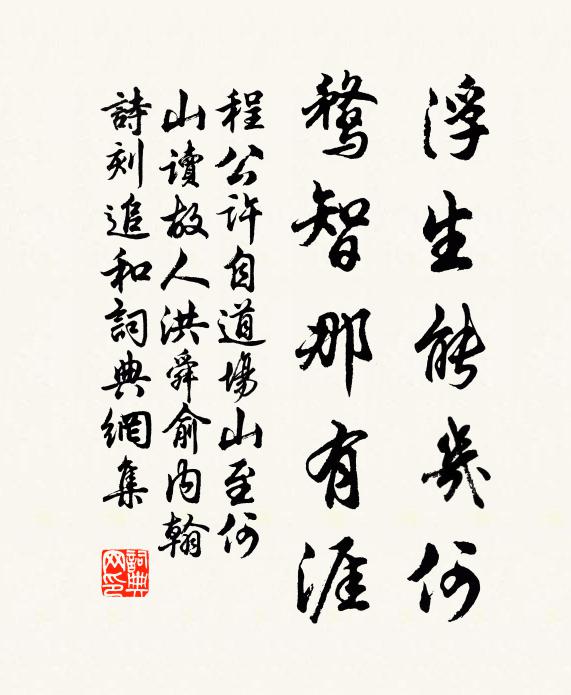 浮生能幾何
騖智那有涯
程公許自道場山至何
山讀故人洪舜俞内翰
詩刻追和詞典網集
詞典网印